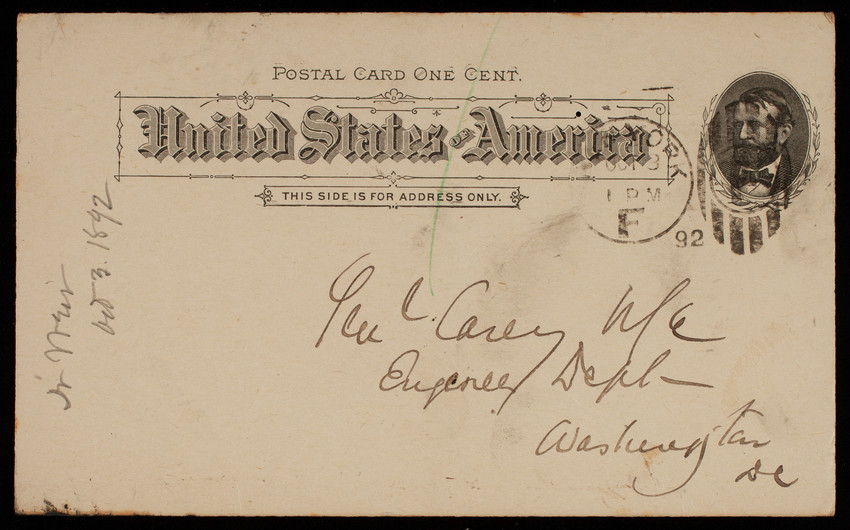 POSTAL CARD ONE CENT.
United States OF America
THIS SIDE IS FOR ADDRESS ONLY.
YORK
OCT 3
1 PM
F
92
Genl. Casey
Engineer Dept
Washington
DC
Dr Weir
Oct 3. 1892